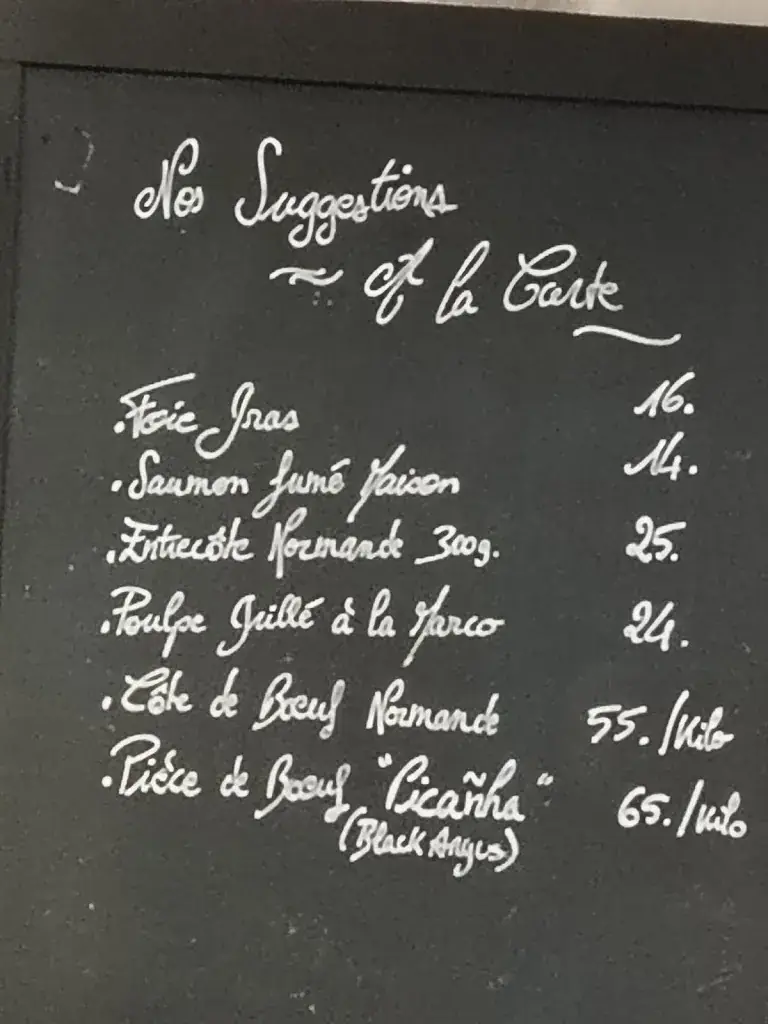 Nos Suggestions
~ A la Carte
. Foie Gras 16.
. Saumon fumé Maison 14.
. Entrecôte Normande 300g. 25.
. Poulpe Grillé à la Marco 24.
. Côte de Boeuf Normande 55./Kilo
. Pièce de Boeuf "Picañha" 65./Kilo
(Black Angus)